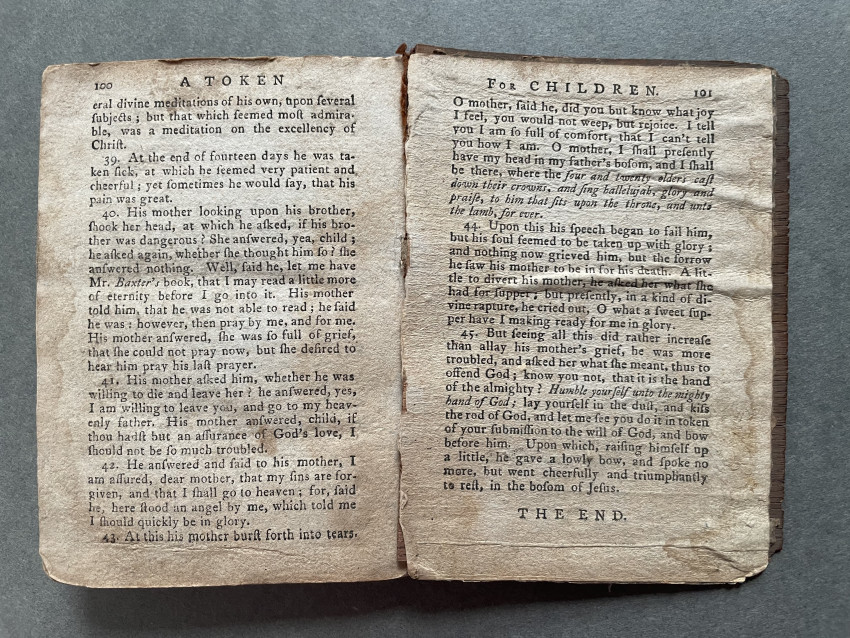 100
A TOKEN
eral divine meditations of his own, upon ſeveral
ſubjects ; but that which ſeemed moſt admira-
ble, was a meditation on the excellency of
Chriſt.
39. At the end of fourteen days he was ta-
ken ſick, at which he ſeemed very patient and
cheerful ; yet ſometimes he would ſay, that his
pain was great.
40. His mother looking upon his brother,
ſhook her head, at which he aſked, if his bro-
ther was dangerous ? She anſwered, yea, child ;
he aſked again, whether ſhe thought him ſo ? ſhe
anſwered nothing. Well, ſaid he, let me have
Mr. Baxter's book, that I may read a little more
of eternity before I go into it. His mother
told him, that he was not able to read ; he ſaid
he was : however, then pray by me, and for me.
His mother anſwered, ſhe was ſo full of grief,
that ſhe could not pray now, but ſhe deſired to
hear him pray his laſt prayer.
41. His mother aſked him, whether he was
willing to die and leave her ? he anſwered, yes,
I am willing to leave you, and go to my heav-
enly father. His mother anſwered, child, if
thou hadſt but an aſſurance of God's love, I
ſhould not be ſo much troubled.
42. He anſwered and ſaid to his mother, I
am aſſured, dear mother, that my ſins are for-
given, and that I ſhall go to heaven ; for, ſaid
he, here ſtood an angel by me, which told me
I ſhould quickly be in glory.
43. At this his mother burſt forth into tears.
FOR CHILDREN.
101
O mother, ſaid he, did you but know what joy
I feel, you would not weep, but rejoice. I tell
you I am ſo full of comfort, that I can't tell
you how I am. O mother, I ſhall preſently
have my head in my father's boſom, and I ſhall
be there, where the four and twenty elders caſt
down their crowns, and ſing hallelujah, glory and
praiſe, to him that ſits upon the throne, and unto
the lamb, for ever.
44. Upon this his ſpeech began to fail him,
but his ſoul ſeemed to be taken up with glory ;
and nothing now grieved him, but the ſorrow
he ſaw his mother to be in for his death. A lit-
tle to divert his mother, he aſked her what ſhe
had for ſupper ; but preſently, in a kind of di-
vine rapture, he cried out, O what a ſweet ſup-
per have I making ready for me in glory.
45. But ſeeing all this did rather increaſe
than allay his mother's grief, he was more
troubled, and aſked her what ſhe meant, thus to
offend God ; know you not, that it is the hand
of the almighty ? Humble yourſelf unto the mighty
hand of God ; lay yourſelf in the duſt, and kiſs
the rod of God, and let me ſee you do it in token
of your ſubmiſſion to the will of God, and bow
before him. Upon which, raiſing himſelf up
a little, he gave a lowly bow, and ſpoke no
more, but went cheerfully and triumphantly
to reſt, in the boſom of Jeſus.
THE END.